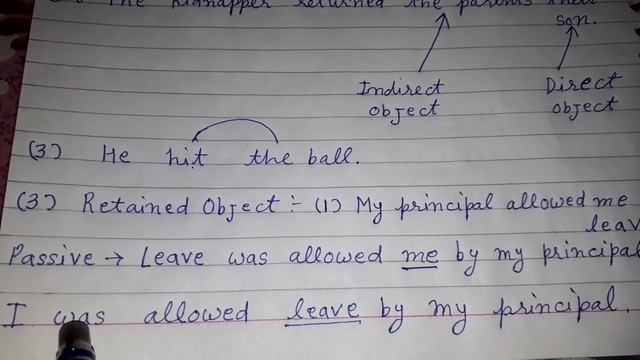 The kidnapper returned the parents their
son.
Indirect Direct
object object
(3) He hit the ball.
(3) Retained Object :- (1) My principal allowed me
leav
Passive → Leave was allowed me by my principal
I was allowed leave by my principal.